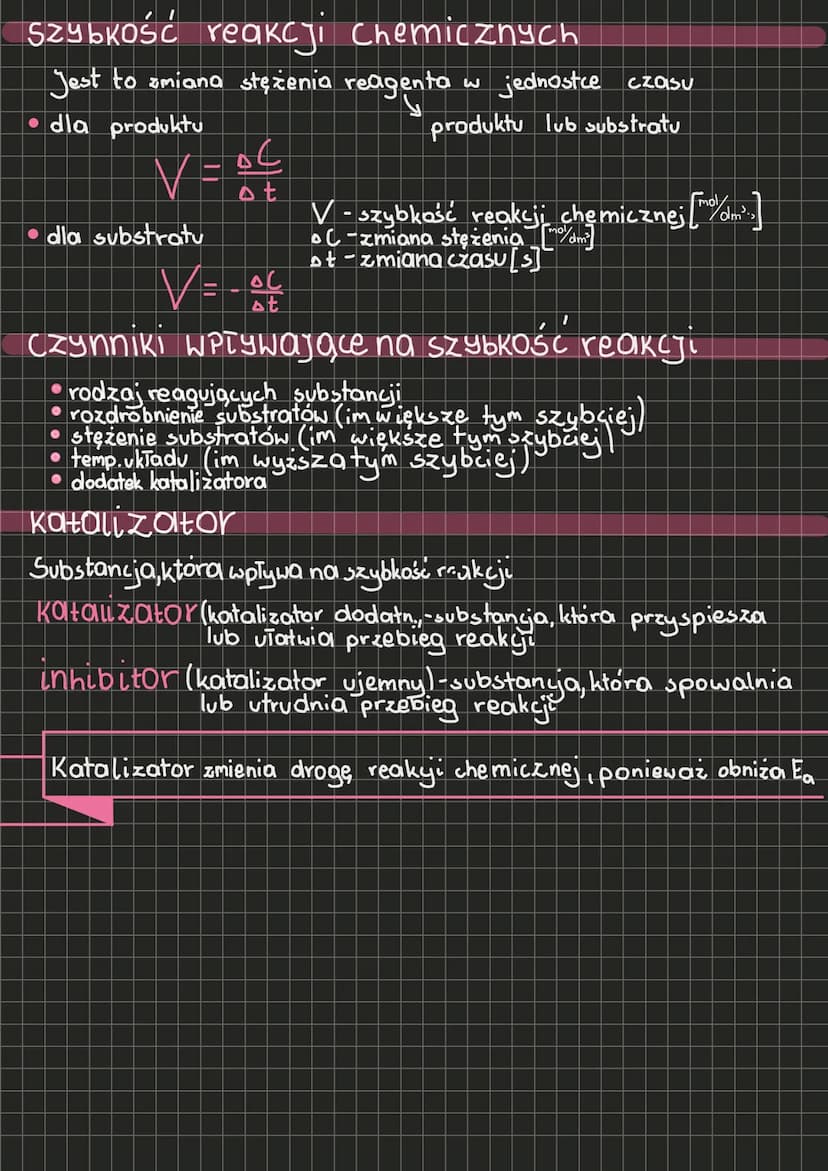 Szybkość reakcji chemicznych
Jest to zmiana stężenia reagenta w jednostce czasu
produktu lub substratu
• dla produktu
V = ΔC / Δt
• dla substratu
V = - ΔC / Δt
V - szybkość reakcji chemicznej [mol/dm³·s]
ΔC - zmiana stężenia [mol/dm³]
Δt - zmiana czasu [s]
Czynniki wpływające na szybkość reakcji
• rodzaj reagujących substancji
• rozdrobnienie substratów (im większe tym szybciej)
• stężenie substratów (im większe tym szybciej)
• temp. układu (im wyższa tym szybciej)
• dodatek katalizatora
Katalizator
Substancja, która wpływa na szybkość reakcji
Katalizator (katalizator dodatn., - substancja, która przyspiesza
lub ułatwia przebieg reakcji
inhibitor (katalizator ujemny) - substancja, która spowalnia
lub utrudnia przebieg reakcji
Katalizator zmienia drogę reakcji chemicznej, ponieważ obniża Ea